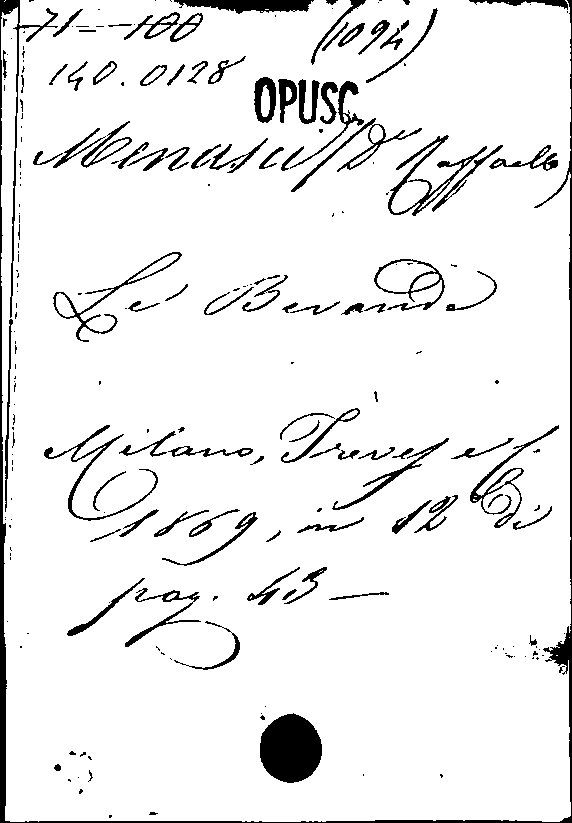 71-100 (1094)
140.0128
OPUSC
Menasci (Dr Raffaello)
Le Bevande
Milano, Treves e C.
1869, in 12° di
pag. 43 —